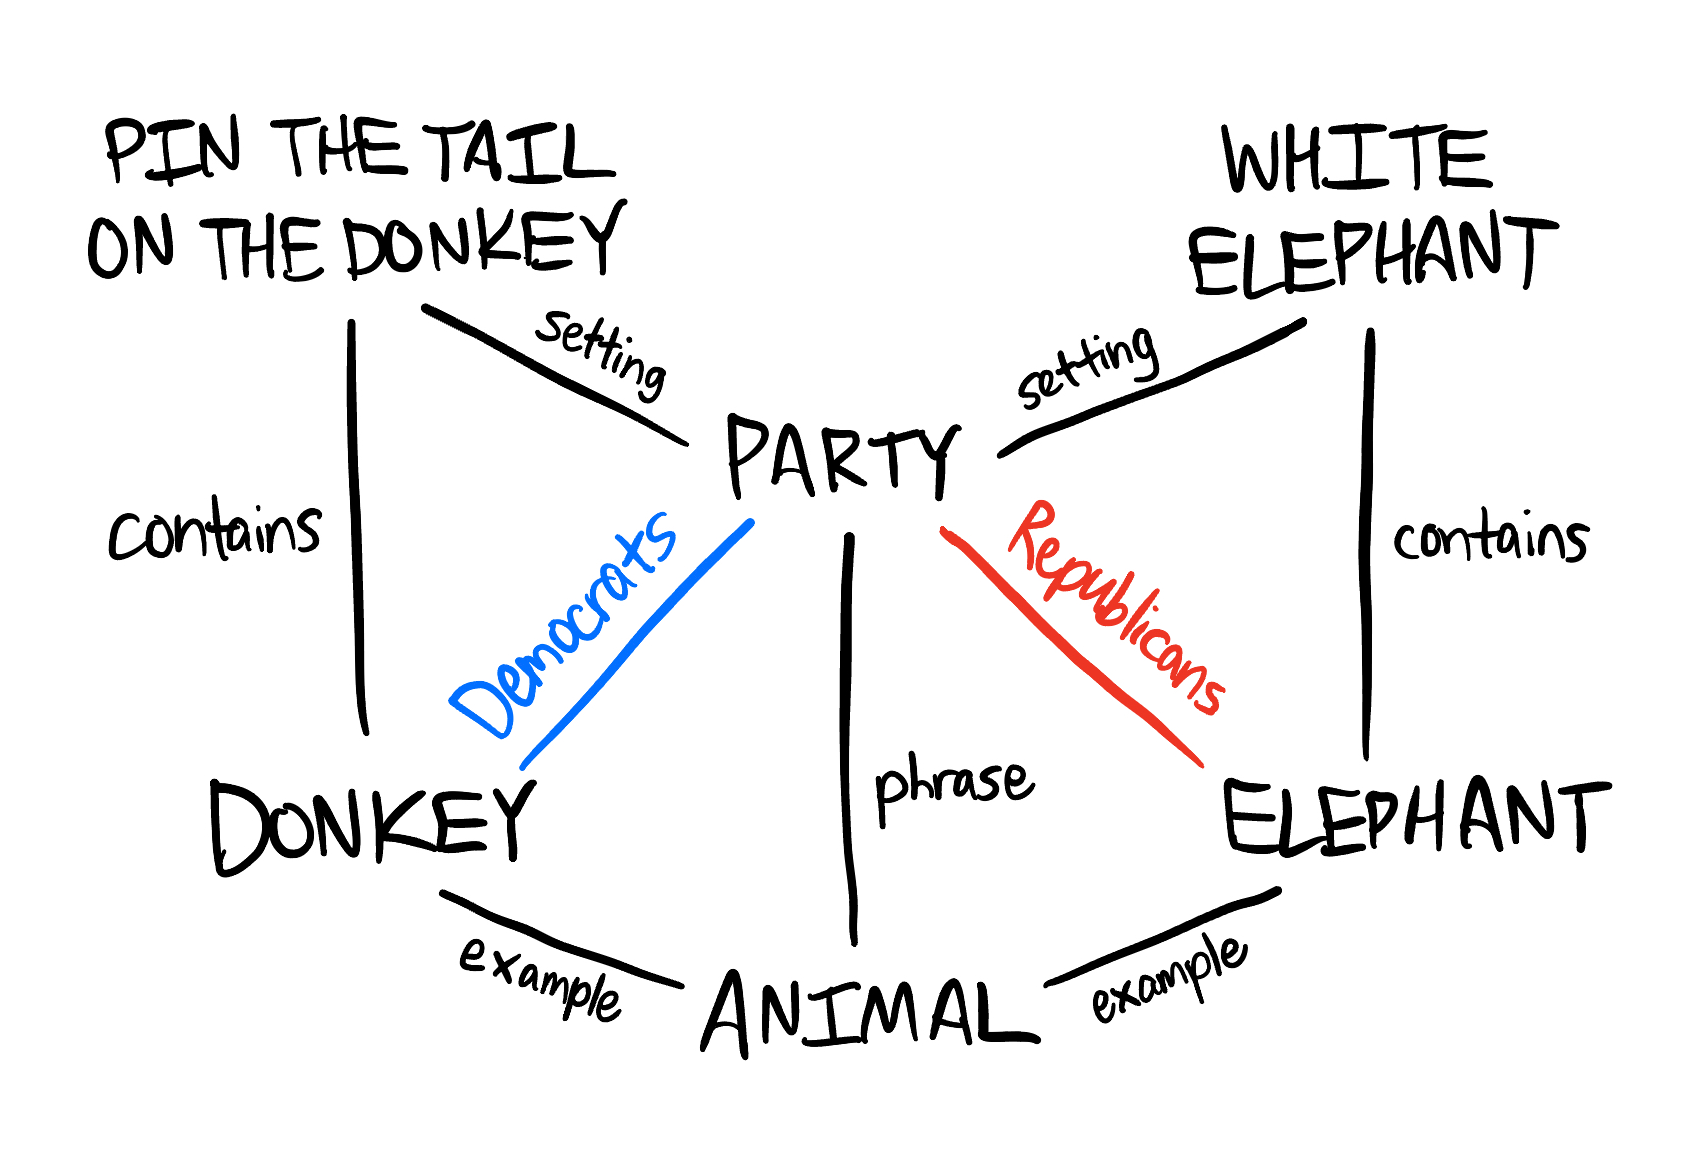 PIN THE TAIL
ON THE DONKEY
WHITE
ELEPHANT
setting
setting
PARTY
contains
Democrats
Republicans
contains
phrase
DONKEY
ELEPHANT
example
example
ANIMAL